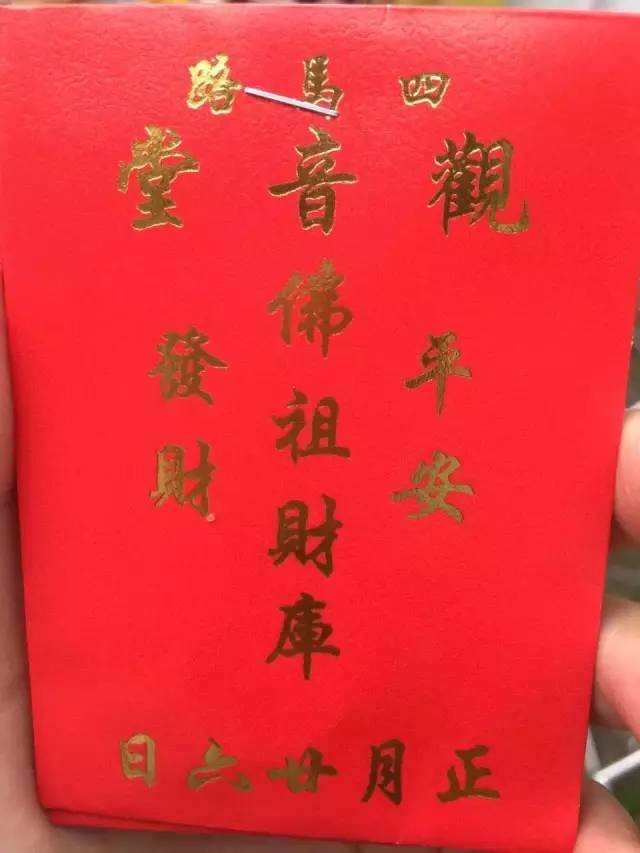 四馬路
觀音堂
平安
佛祖財庫
發財
正月廿六日